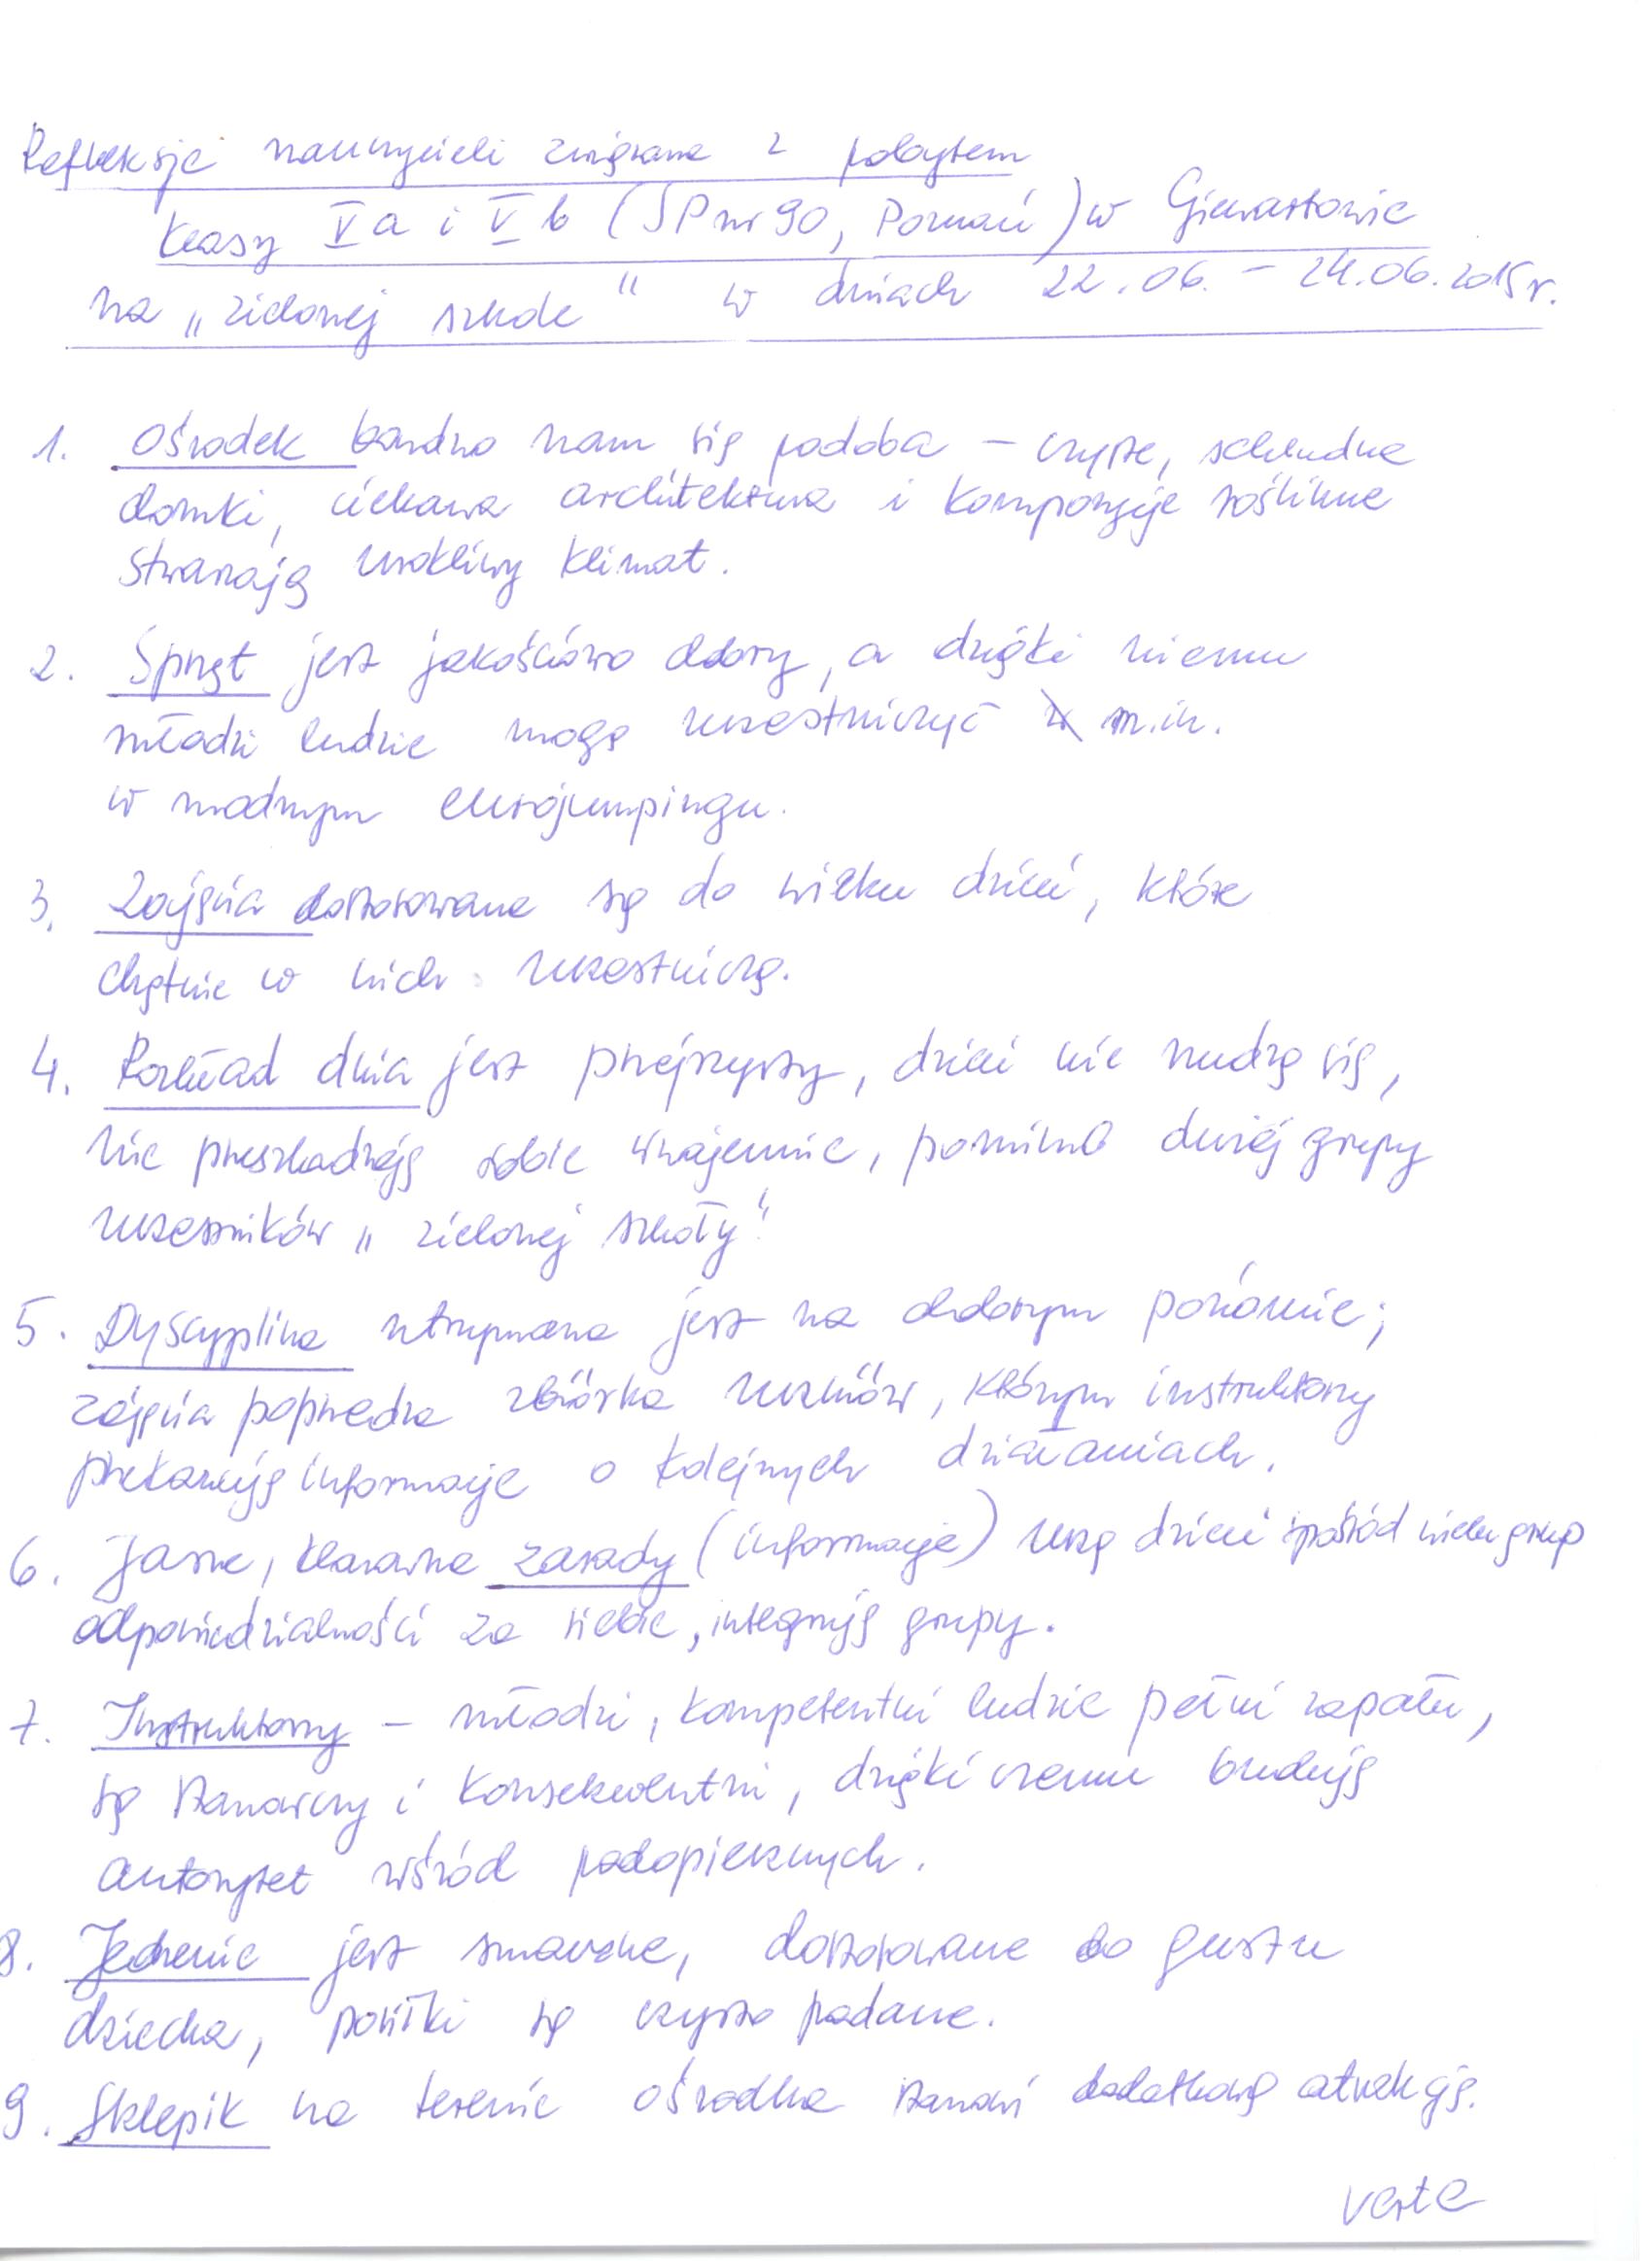 Refleksje nauczycieli związane z pobytem
klasy Va i Vb (SP nr 90, Poznań) w Giewartowie
na „zielonej szkole" w dniach 22.06. – 24.06.2015r.
1. Ośrodek bardzo nam się podoba – czyste, schludne
domki, ciekawa architektura i kompozycje roślinne
stwarzają urokliwy klimat.
2. Sprzęt jest jakościowo dobry, a dzięki niemu
młodzi ludzie mogą uczestniczyć m.in.
w modnym eurojumpingu.
3. Zajęcia dostosowane są do wieku dzieci, które
chętnie w nich uczestniczą.
4. Rozkład dnia jest przejrzysty, dzieci nie nudzą się,
nie przeszkadzają sobie wzajemnie, pomimo dużej grupy
uczestników „zielonej szkoły".
5. Dyscyplina utrzymana jest na dobrym poziomie;
zajęcia poprzedza zbiórka uczniów, którym instruktorzy
przekazują informacje o kolejnych działaniach.
6. Jasne, klarowne zasady (informacje) uczą dzieci spośród wielu grup
odpowiedzialności za siebie, integrują grupy.
7. Instruktorzy – młodzi, kompetentni ludzie pełni zapału,
są stanowczy i konsekwentni, dzięki czemu budują
autorytet wśród podopiecznych.
8. Jedzenie jest smaczne, dostosowane do gustu
dziecka, posiłki są czysto podane.
9. Sklepik na terenie ośrodka stanowi dodatkową atrakcję.
verte